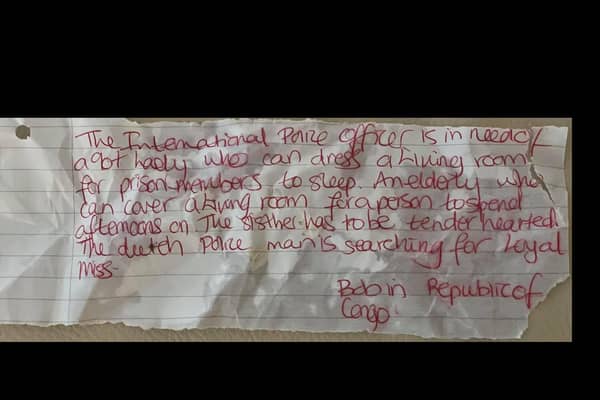 The International Police officer is in need of
a got hadly who can dress a Living room
for prison members to sleep. An elderly who
can cover a Living room for a person to spend
afternoons on. The sisther has to be tender hearted.
The duetch Police man is searching for Loyal
miss.
Bob in Republic of
Congo